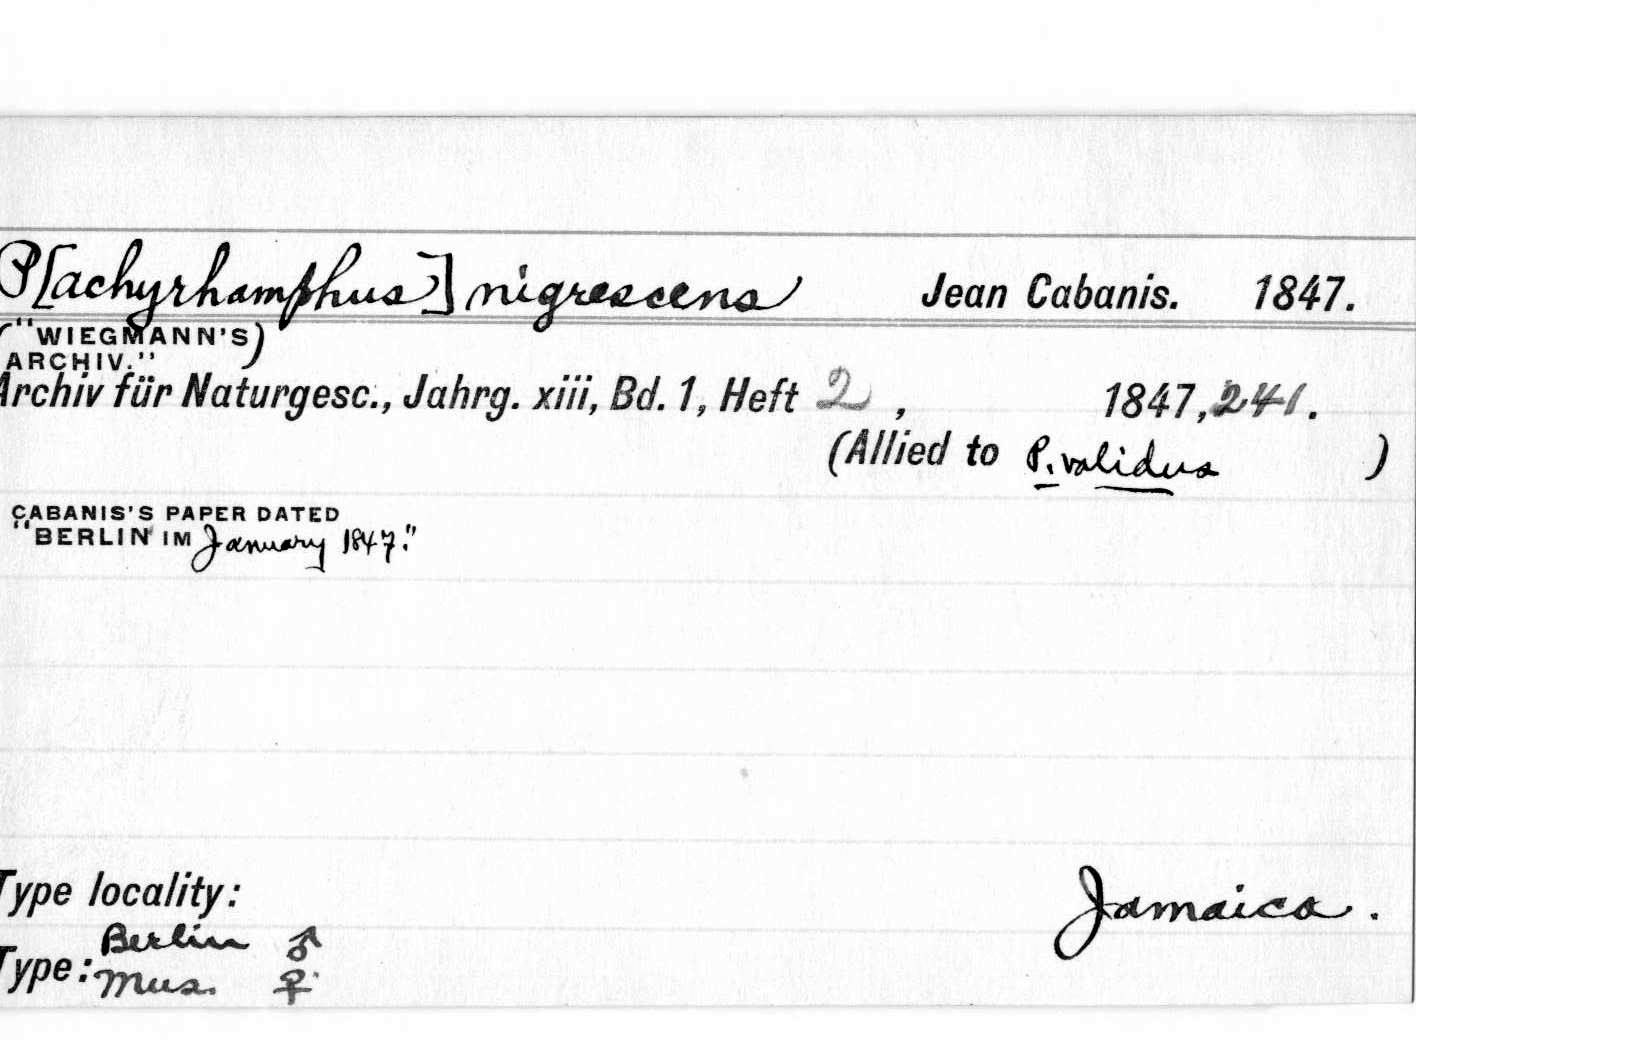 P[achyrhamphus] nigrescens Jean Cabanis. 1847.
("WIEGMANN'S)
ARCHIV."
Archiv für Naturgesc., Jahrg. xiii, Bd. 1, Heft 2, 1847, 241.
(Allied to P. validus )
CABANIS'S PAPER DATED
"BERLIN IM January 1847."
Type locality: Jamaica.
Berlin ♂
Type: Mus. ♀